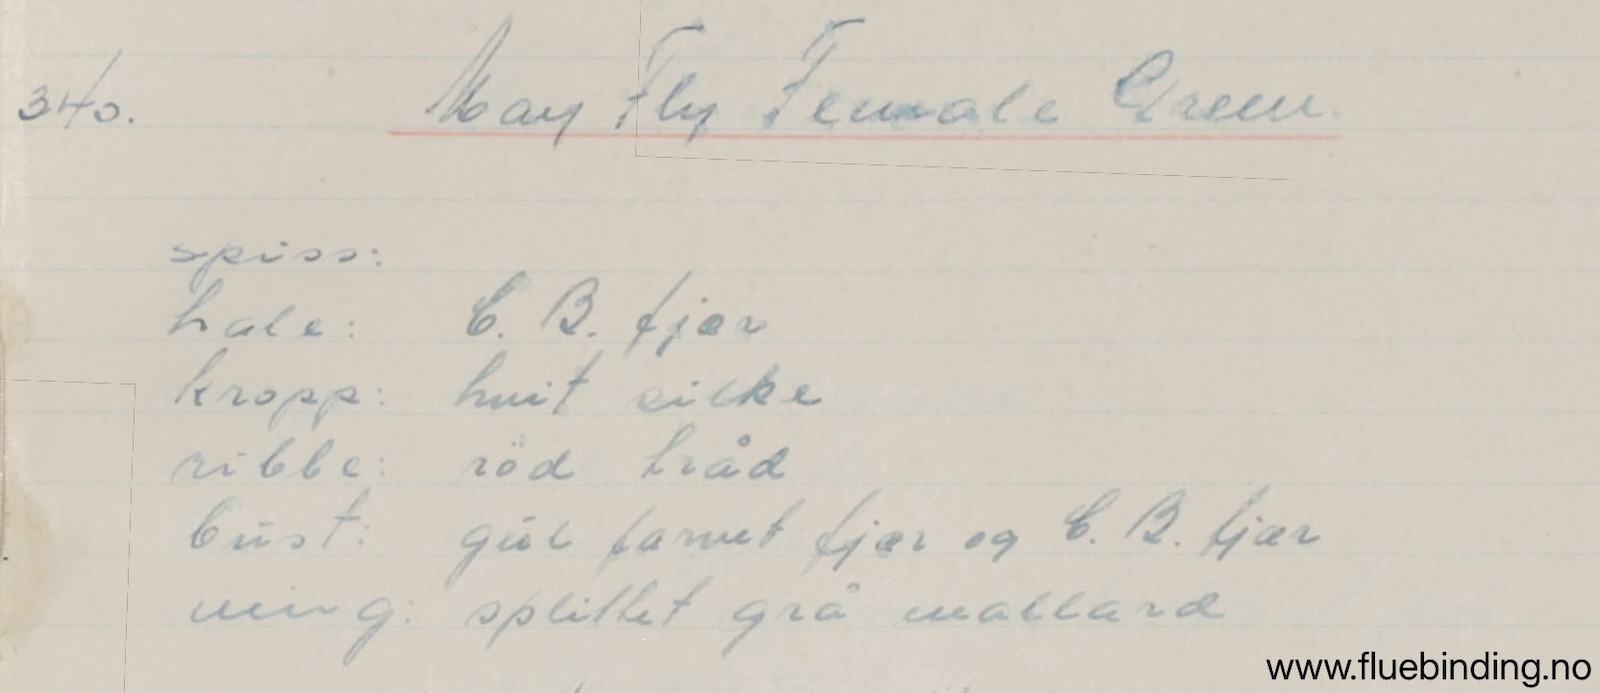 340. May Fly Female Green.
spiss:
hale: C. B. fjær
kropp: hvit silke
ribbe: röd tråd
bust: gul farvet fjær og C. B. fjær
ving: splittet grå mallard
www.fluebinding.no